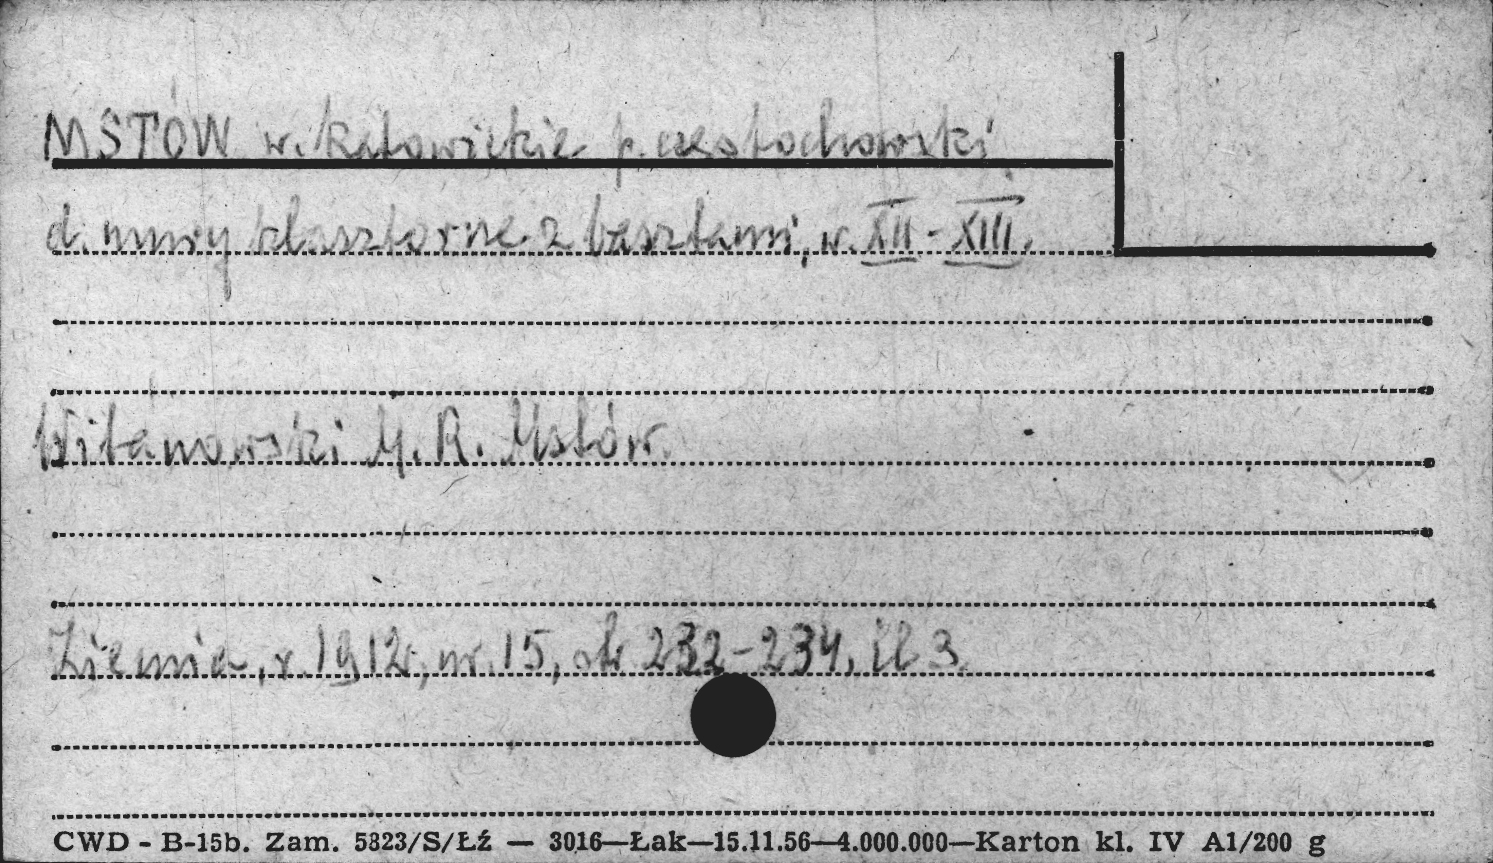 MSTÓW w. katowickie p. częstochowski
d. mury klasztorne z basztami, w. XII - XIII.
Witanowski M. R. Mstów.
Ziemia, r. 1912, nr. 15, str 232-234, il 3.
CWD - B-15b. Zam. 5823/S/Łź — 3016—Łak—15.11.56—4.000.000—Karton kl. IV A1/200 g